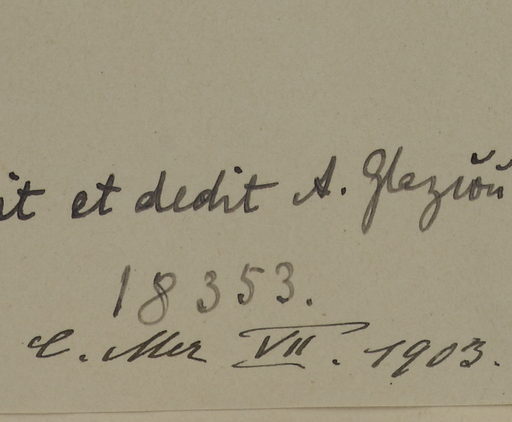 it et dedit A. Glaziou
18353.
C. Mez VII. 1903.